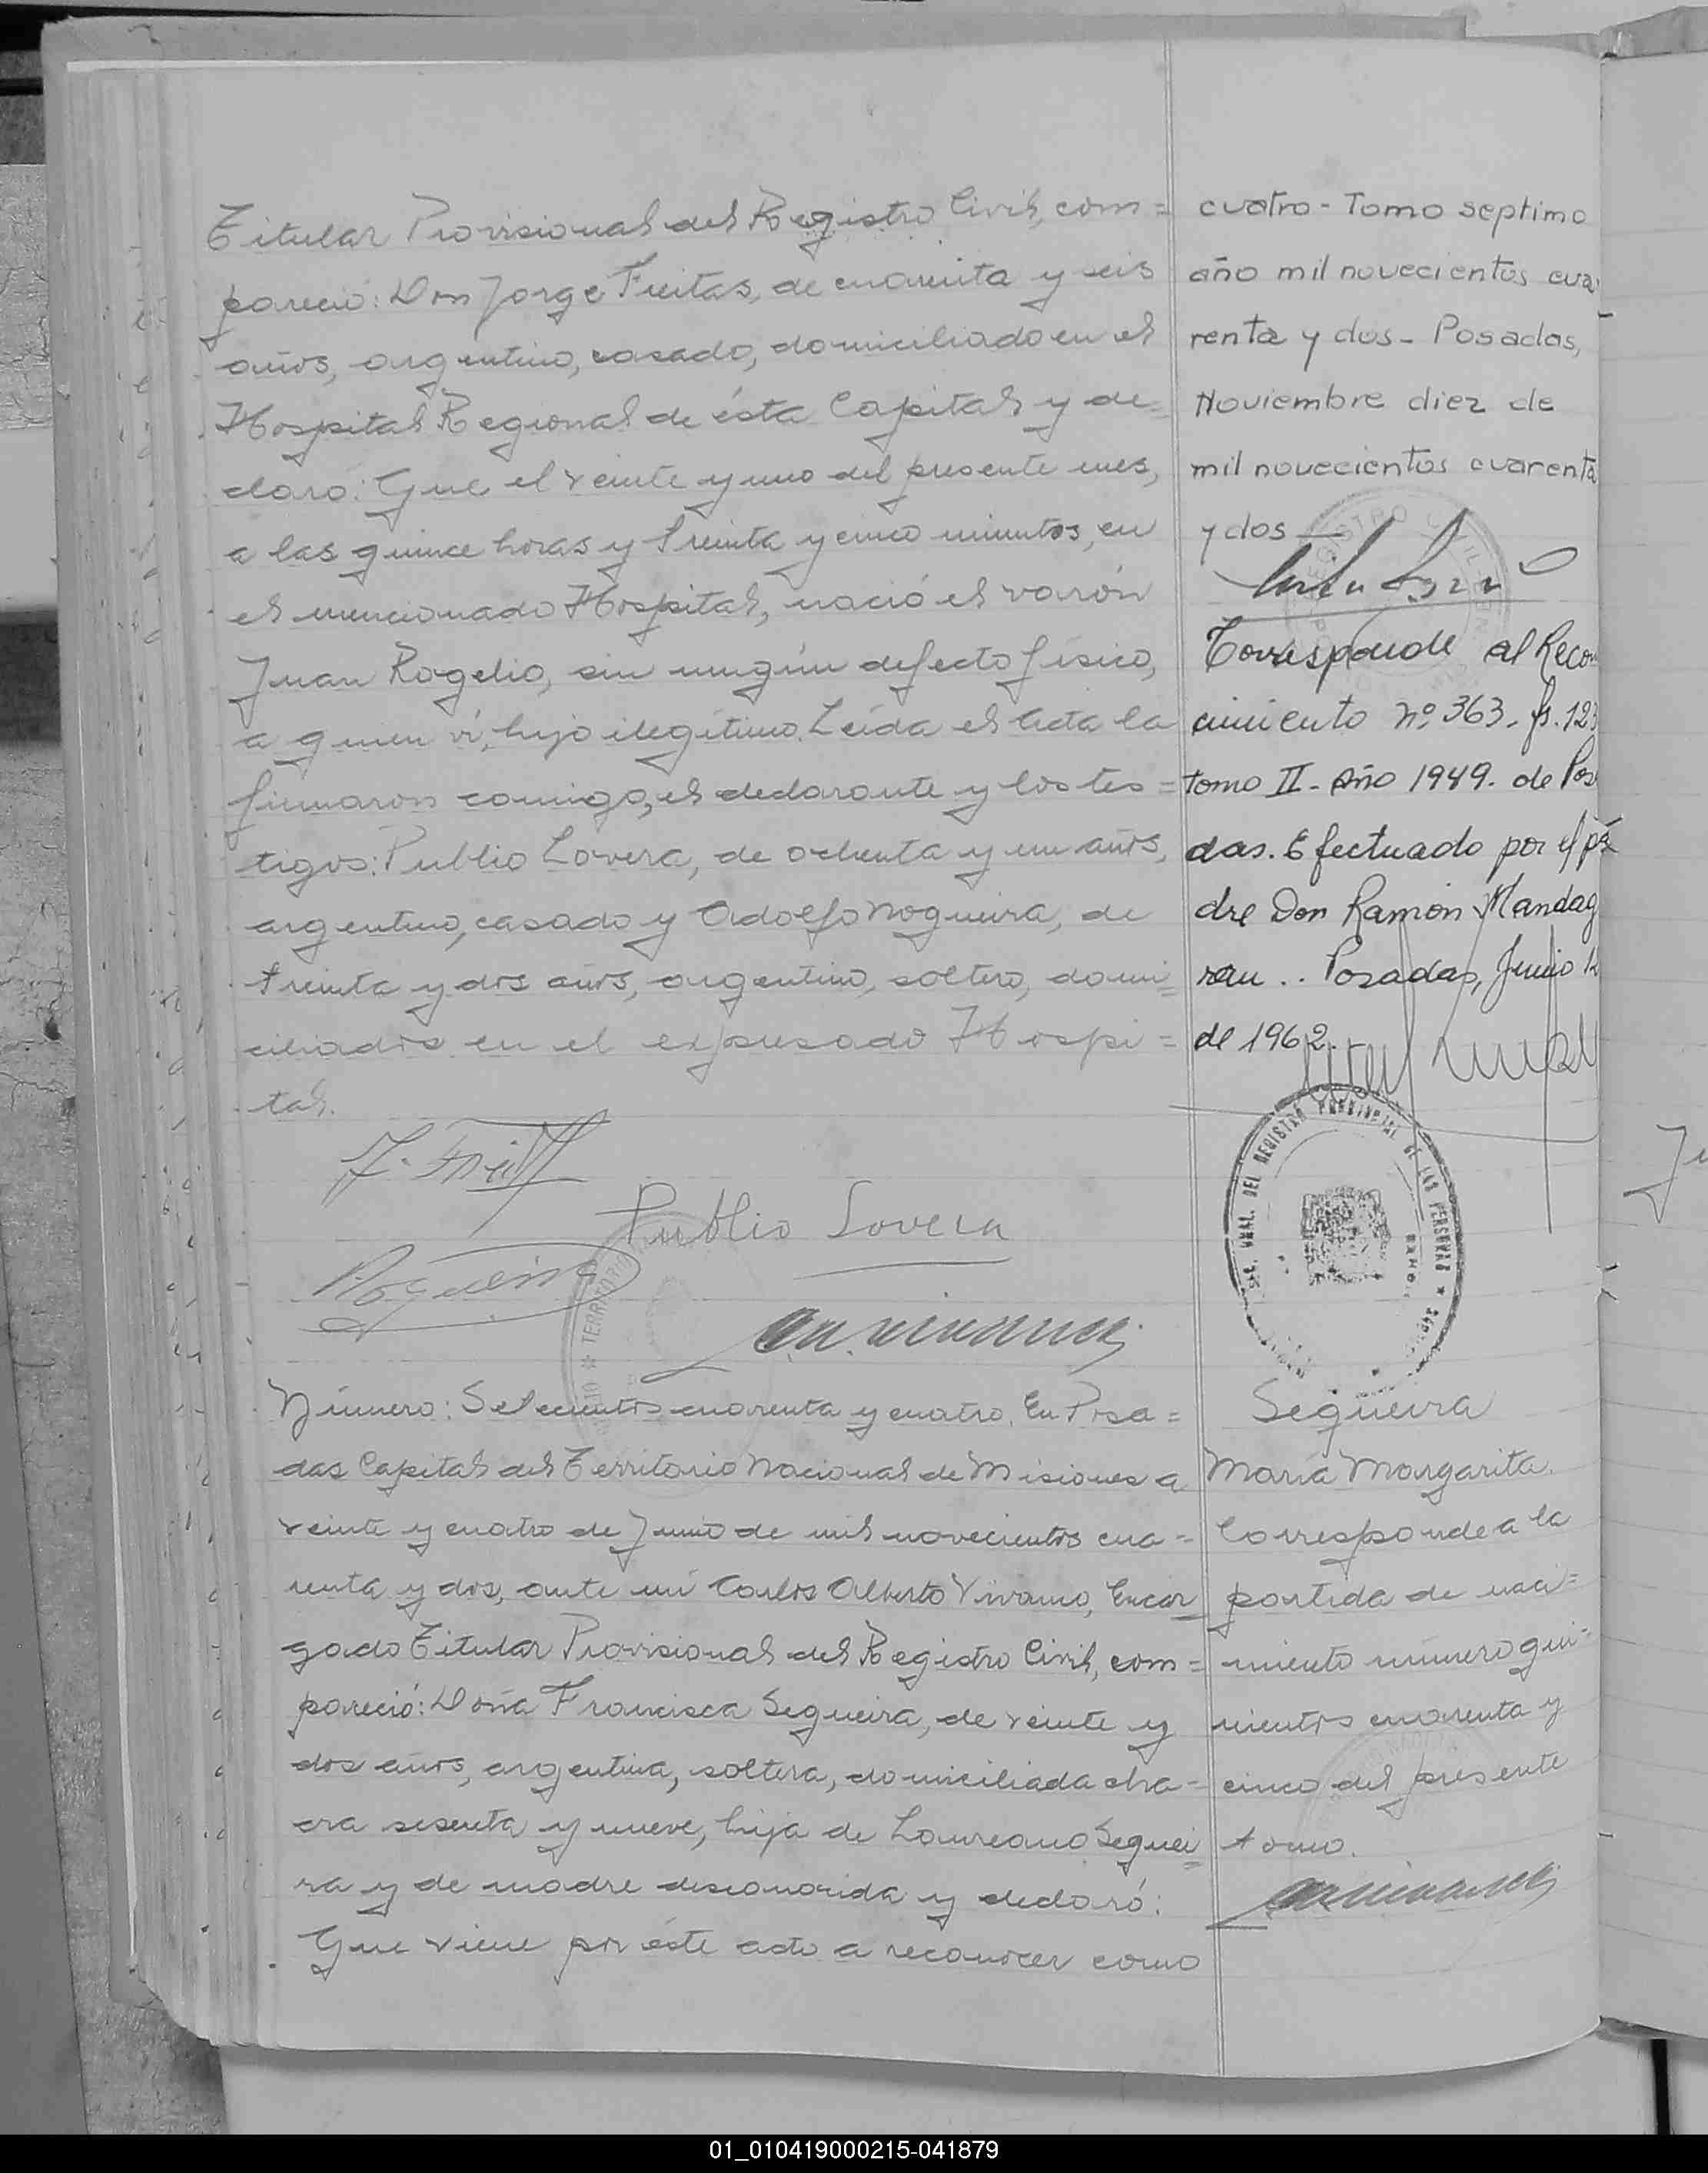 Titular Provisional del Registro Civil, com=
pareció: Don Jorge Freitas, de cuarenta y seis
años, argentino, casado, domiciliado en el
Hospital Regional de ésta Capital y de=
claró: Que el veinte y uno del presente mes,
a las quince horas y treinta y cinco minutos, en
el mencionado Hospital, nació el varón
Juan Rogelio, sin ningún defecto físico,
a quien ví, hijo ilegítimo. Leída el Acta la
firmaron conmigo, el declarante y los tes=
tigos: Publio Lovera, de ochenta y un años,
argentino, casado y Adolfo Nogueira, de
treinta y dos años, argentino, soltero, domi=
ciliados en el expresado Hospi=
tal.
J. Freitas
Publio Lovera
Nogueira
Número: Setecientos cuarenta y cuatro. En Posa=
das Capital del Territorio Nacional de Misiones a
veinte y cuatro de Junio de mil novecientos cua=
renta y dos, ante mí Carlos Alberto Vivanco, Encar=
gado Titular Provisional del Registro Civil, com=
pareció: Doña Francisca Sequeira, de veinte y
dos años, argentina, soltera, domiciliada cha=
cra sesenta y nueve, hija de Laureano Sequei=
ra y de madre desconocida y declaró:
Que viene por éste acto a reconocer como
cuatro - Tomo septimo
año mil novecientos cua
renta y dos - Posadas,
Noviembre diez de
mil novecientos cuarenta
y dos
Corresponde al Recon
cimiento Nº 363 - fs. 123
tomo II - Año 1949. de Pos
das. Efectuado por el pa
dre Don Ramón Mandag
ran .. Posadas, Junio 12
de 1962.
DEL REGISTRO PROVINCIAL DE LAS PERSONAS
Sequeira
María Margarita.
Corresponde a la
partida de naci=
miento número qui=
nientos cuarenta y
cinco del presente
tomo.
01_010419000215-041879